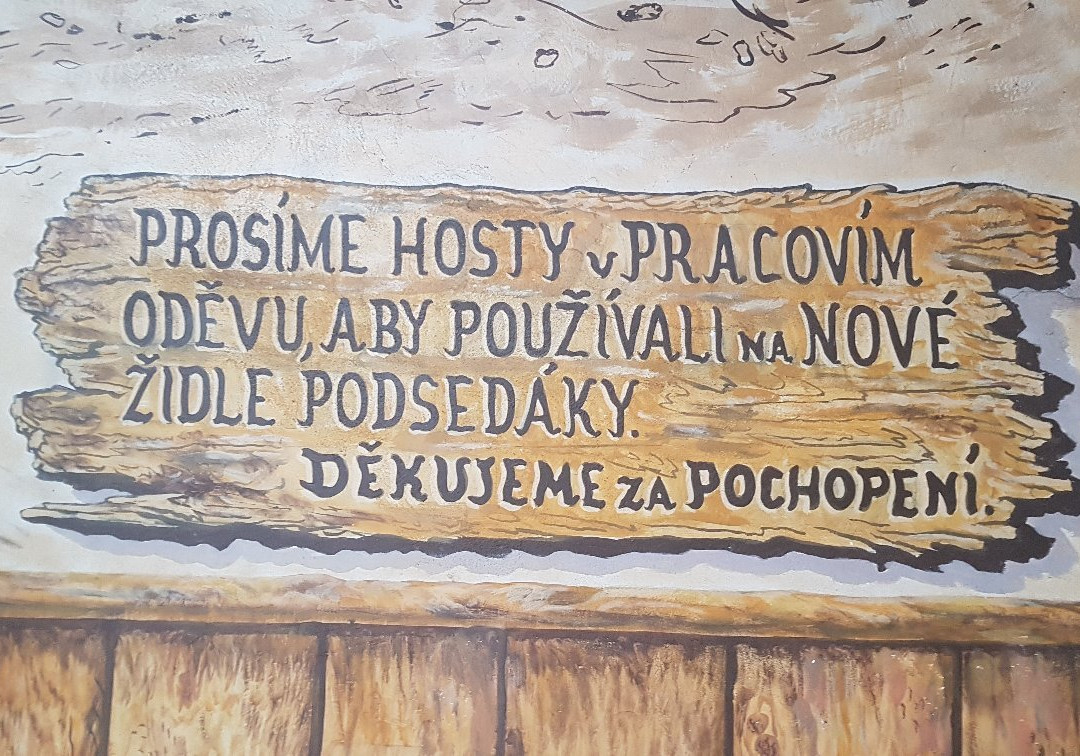 PROSÍME HOSTY v PRACOVÍM
ODĚVU, ABY POUŽÍVALI NA NOVÉ
ŽIDLE PODSEDÁKY.
DĚKUJEME ZA POCHOPENÍ.